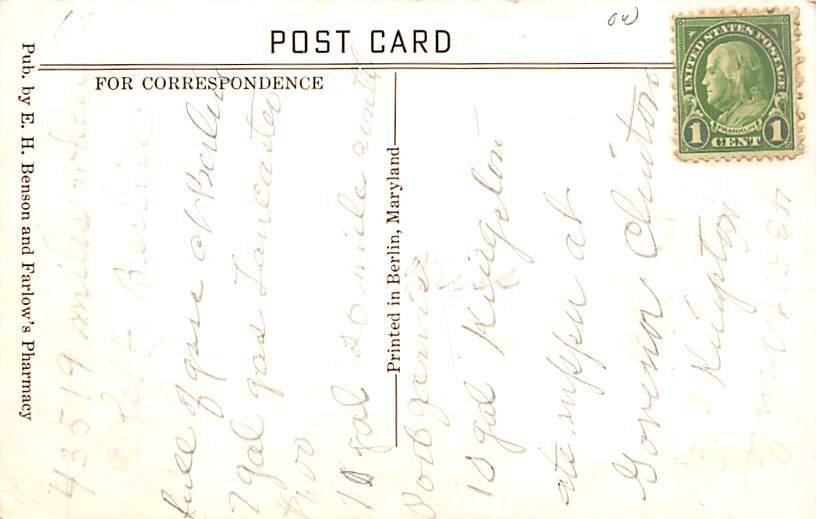 POST CARD
FOR CORRESPONDENCE
UNITED STATES POSTAGE
FRANKLIN
1 CENT 1
Pub. by E. H. Benson and Farlow's Pharmacy
Printed in Berlin, Maryland
43519 miles when
left Berlin
full of gass at Berlin
7 gal gas Lancaster
$1.00
10 gal 20 mile south
18 gal Kingston
ate supper at
Govenor Clinton
Kingston